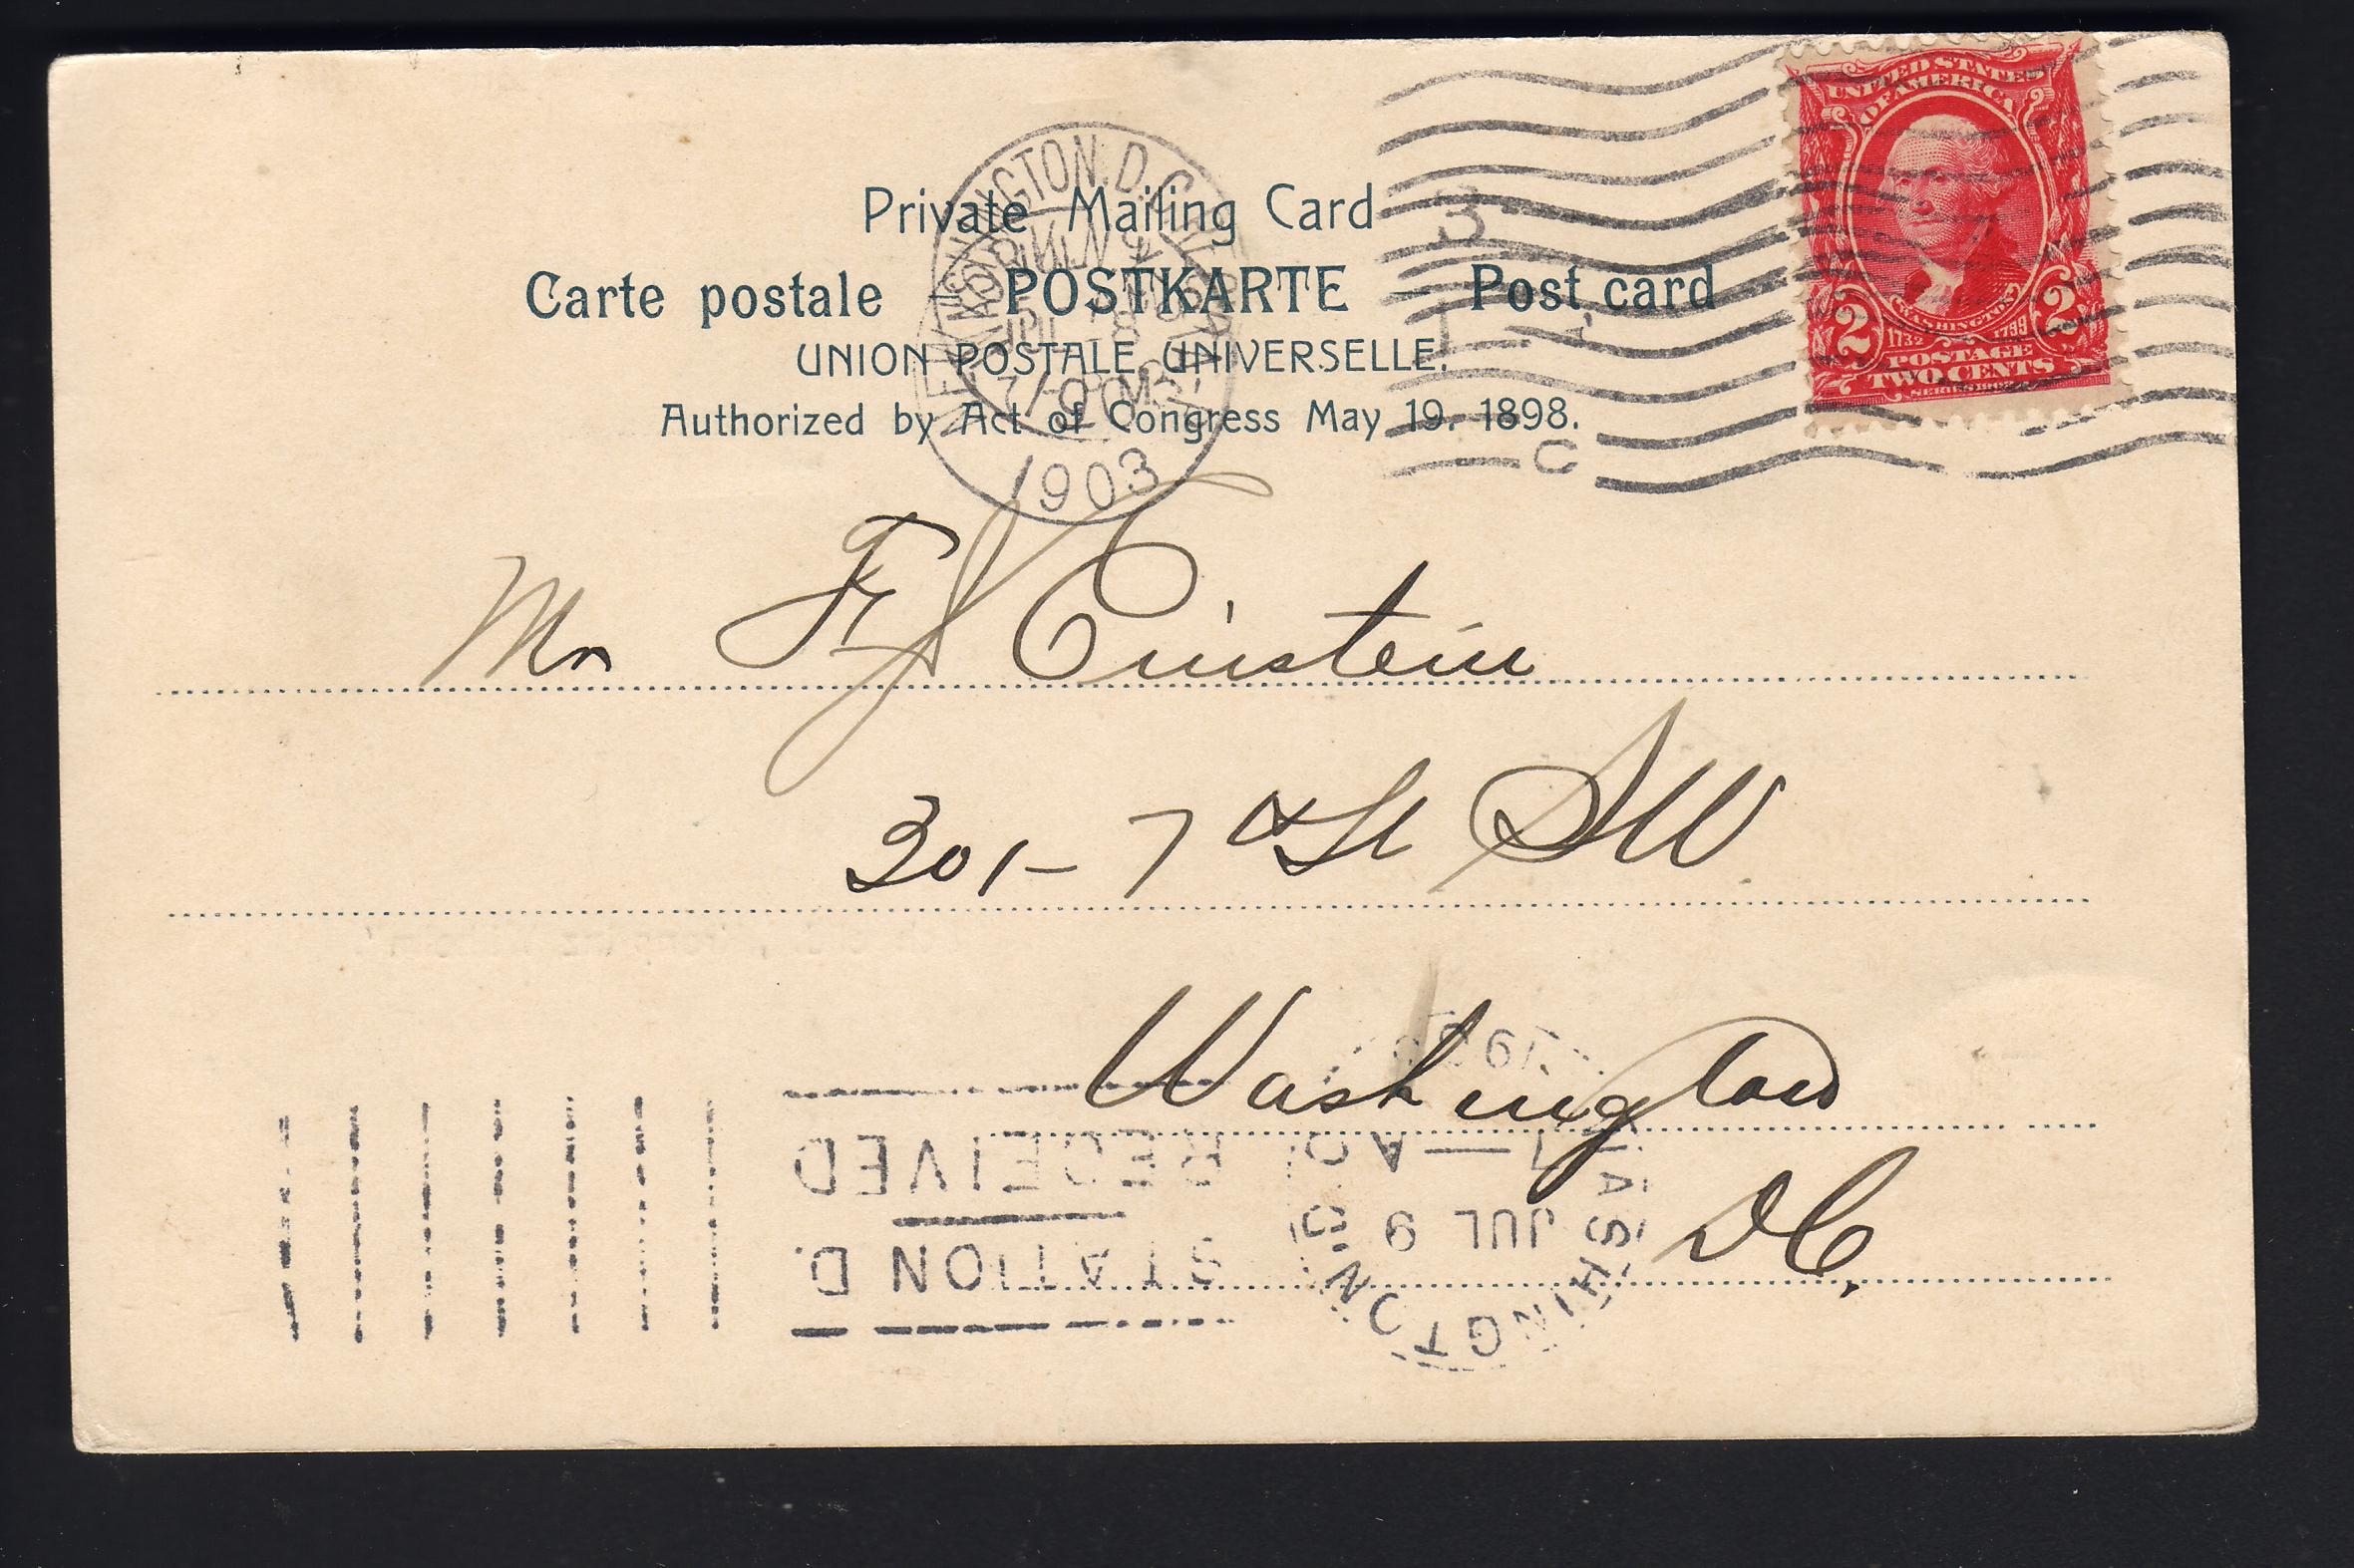 UNITED STATES
OF AMERICA
WASHINGTON
1732 1799
2 2
POSTAGE
TWO CENTS
Private Mailing Card
Carte postale POSTKARTE Post card
UNION POSTALE UNIVERSELLE.
Authorized by Act of Congress May 19. 1898.
1903
Mr F J Einstein
301 - 7th St SW
Washington
D C.
WASHINGTON
JUL 9
STATION D.
RECEIVED